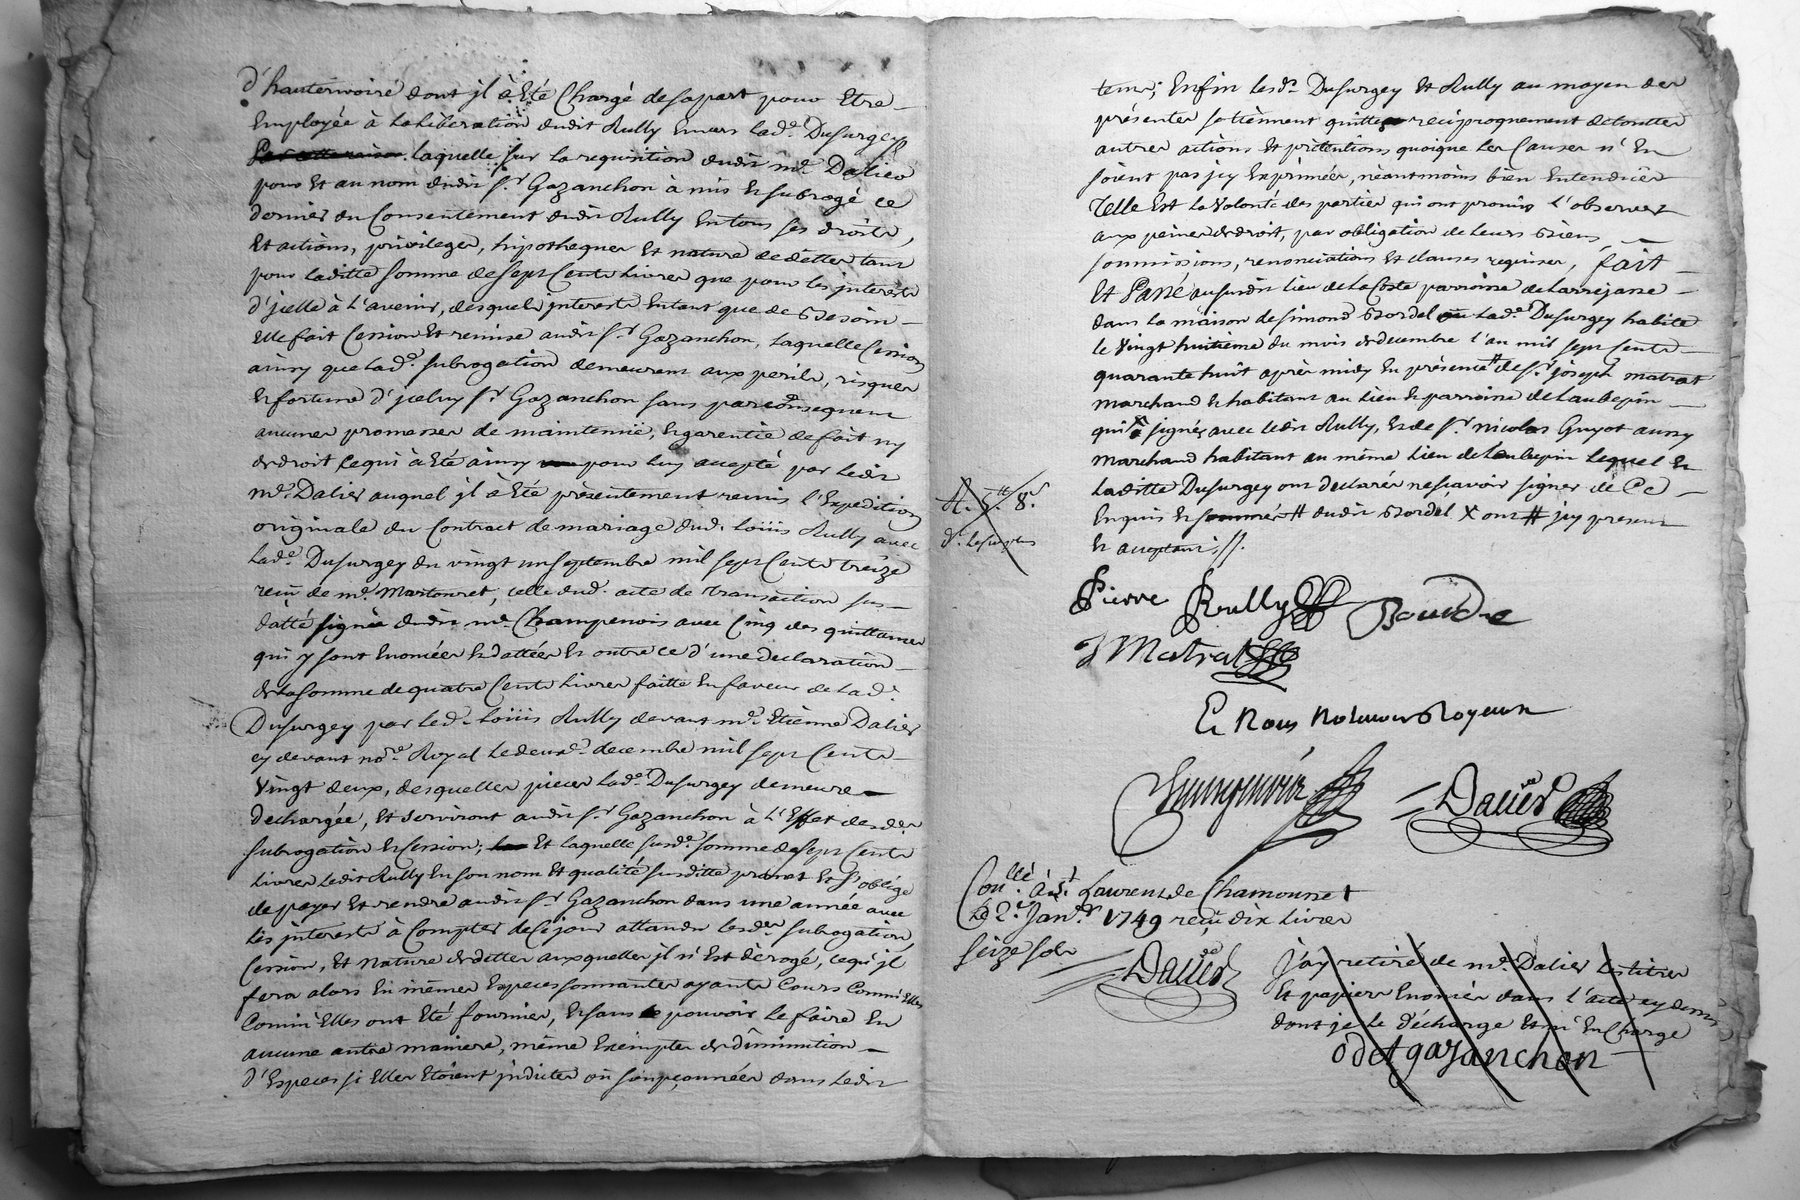 d'hauterivoire dont jl à Eté Chargé desapart pour Etre
Employée à la Liberation dudit Rully Envers lad.e Dusurgey
laquelle sur la requisition dudit m.e Dalier
pour Et au nom dudit s.r Gazanchon à mis Et subrogé ce
dernier du Consentement dudit Rully En tous ses droits,
Et actions, privileges, hipotheques Et nature de dettes tant
pour laditte somme de sept Cents Livres que pour les jnterests
d'jcelle à l'avenir, desquels jnterests Entant que de Besoin
Elle fait Cession Et remise audit s.r Gazanchon, laquelle Cession
ainsy que lad.e subrogation demeurent aux perils, risques
Et fortune d'jceluy s.r Gazanchon sans par consequent
aucunes promesses de maintenüe, Et garentie de fait ny
de droit Ce qui à Eté ainsy pour luy accepté par ledit
m.e Dalier auquel jl à Eté présentement remis l'Expedition
originale du Contract de mariage dud. Loüis Rully avec
lad.e Dusurgey du vingt un septembre mil sept Cents treize
reçu de m.e Martouret, celle dud. acte de transaction sus
datté signée dudit m.e Champenois avec Cinq des quittances
qui y sont Enoncées Et dattées Et outre ce d'une declaration
de la somme de quatre Cents Livres faitte En faveur de lad.e
Dusurgey par led. Loüis Rully devant m.e Etienne Dalier
cy devant no.re Royal le deux.e decembre mil sept Cents
Vingt deux, desquelles pieces lad.e Dusurgey demeure
dechargée, Et serviront audit s.r Gazanchon à l'Effet desd.es
subrogation Et Cession; Et laquelle susd.e somme de sept Cents
Livres ledit Rully En son nom Et qualité susditte promet Et s'oblige
de payer Et rendre audit s.r Gazanchon dans une année avec
les jnterests à Compter de Ce jour attandu lesd.es subrogation,
Cession, Et nature de dettes auxquelles jl n'Est dérogé, ce qu'jl
fera alors En mêmes Especes sonnantes ayants Cours Comme Elles
Comm'Elles ont Eté fournies, Et sans pouvoir le faire En
aucune autre maniere, même Exemptes de diminution
d'Especes si Elles Etoient jndictes où soupçonnées dans ledit
tems; Enfin lesd.s Dusurgey Et Rully au moyen des
présentes se tiennent quittes reciproquement de touttes
autres actions Et pretentions quoique les Causes n'En
soient pas jcy Exprimées, néantmoins bien Entendües
Telle Est la Volonté des parties qui ont promis l'observer
aux peines de droit, par obligation de leurs Biens
soumissions, renonciations Et clauses requises, fait
Et Passé au susdit lieu de la Coste parroisse de Larrajasse
dans la maison de simond Bordel où lad.e Dusurgey habite
le Vingt huitieme du mois de decembre l'an mil sept Cents
quarante huit après midy En présence # de s.r joseph matrat
marchand Et habitant au lieu Et parroisse de Laubepin
qui à signé avec ledit Rully, Et de s.r nicolas Guyot aussy
marchand habitant au même lieu de Laubepin lequel Et
laditte Dusurgey ont declarés ne sçavoir signer de Ce
Enquis Et sommés # dudit Bordel X ont # jcy present
Et acceptant; //.
A. 5.tt 8.s
d.t le surplus
Pierre Rully
J Matrat
Et Nous Notaires Royaux
Champenois Dalier
Con.llé à s.t Laurent de Chamousset
le 2.e Janv.r 1749 reçu dix Livres
seize sols
Dalier
J'ay retiré de m.e Dalier les titres
Et papiers Enoncés dans l'acte cy dessus
dont je le décharge Et m'En Charge
odet gazanchon